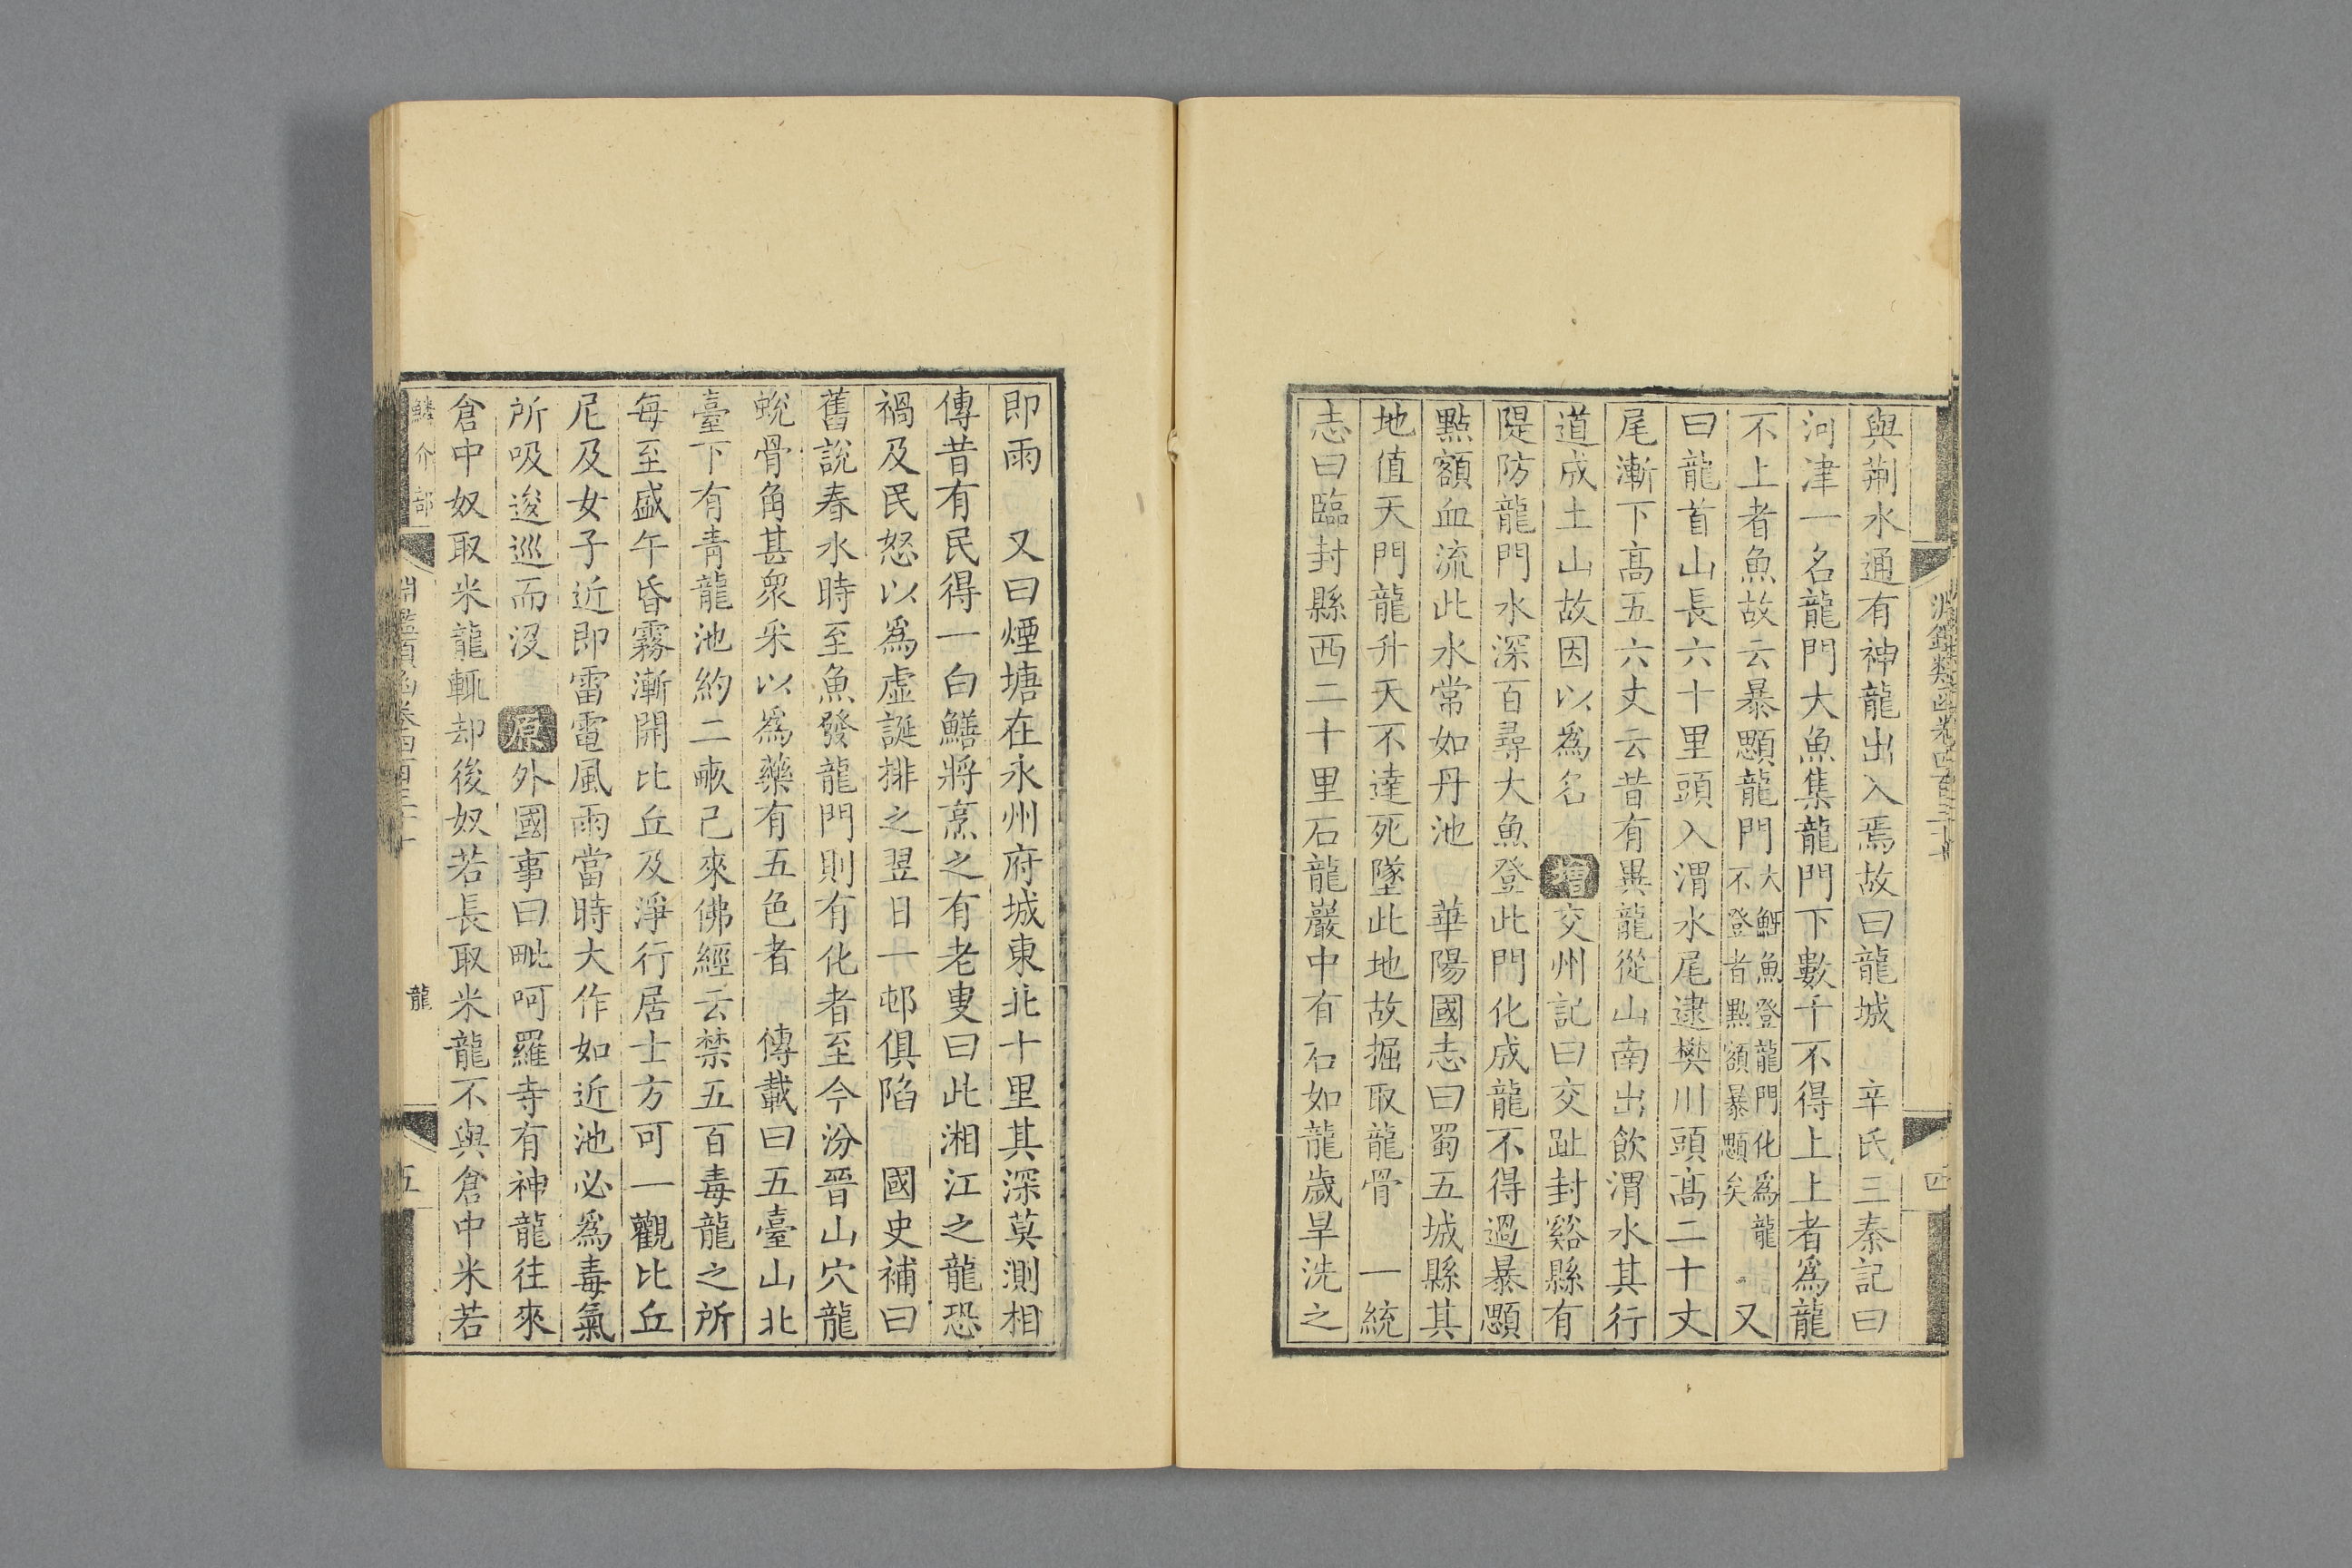 淵鑑類函卷四百三十
四
與荆水通有神龍出入焉故曰龍城　辛氏三秦記曰
河津一名龍門大魚集龍門下數千不得上上者爲龍
不上者魚故云暴顋龍門大魚登龍門化爲龍不登者點額暴顋矣　又
曰龍首山長六十里頭入渭水尾逮樊川頭高二十丈
尾漸下高五六丈云昔有異龍從山南出飲渭水其行
道成土山故因以爲名　增交州記曰交趾封谿縣有
隄防龍門水深百尋大魚登此門化成龍不得過暴顋
點額血流此水常如丹池　華陽國志曰蜀五城縣其
地值天門龍升天不達死墜此地故掘取龍骨　一統
志曰臨封縣西二十里石龍巖中有石如龍歲旱洗之
即雨　又曰煙塘在永州府城東北十里其深莫測相
傳昔有民得一白鱔將烹之有老叟曰此湘江之龍恐
禍及民怒以爲虛誕排之翌日一邨俱陷　國史補曰
舊說春水時至魚發龍門則有化者至今汾晉山穴龍
蛻骨角甚衆采以爲藥有五色者　傳載曰五臺山北
臺下有青龍池約二畝已來佛經云禁五百毒龍之所
每至盛午昏霧漸開比丘及淨行居士方可一觀比丘
尼及女子近即雷電風雨當時大作如近池必爲毒氣
所吸逡巡而沒　原外國事曰毗呵羅寺有神龍往來
倉中奴取米龍輒却後奴若長取米龍不與倉中米若
鱗介部
淵鑑類函卷四百三十
龍
五